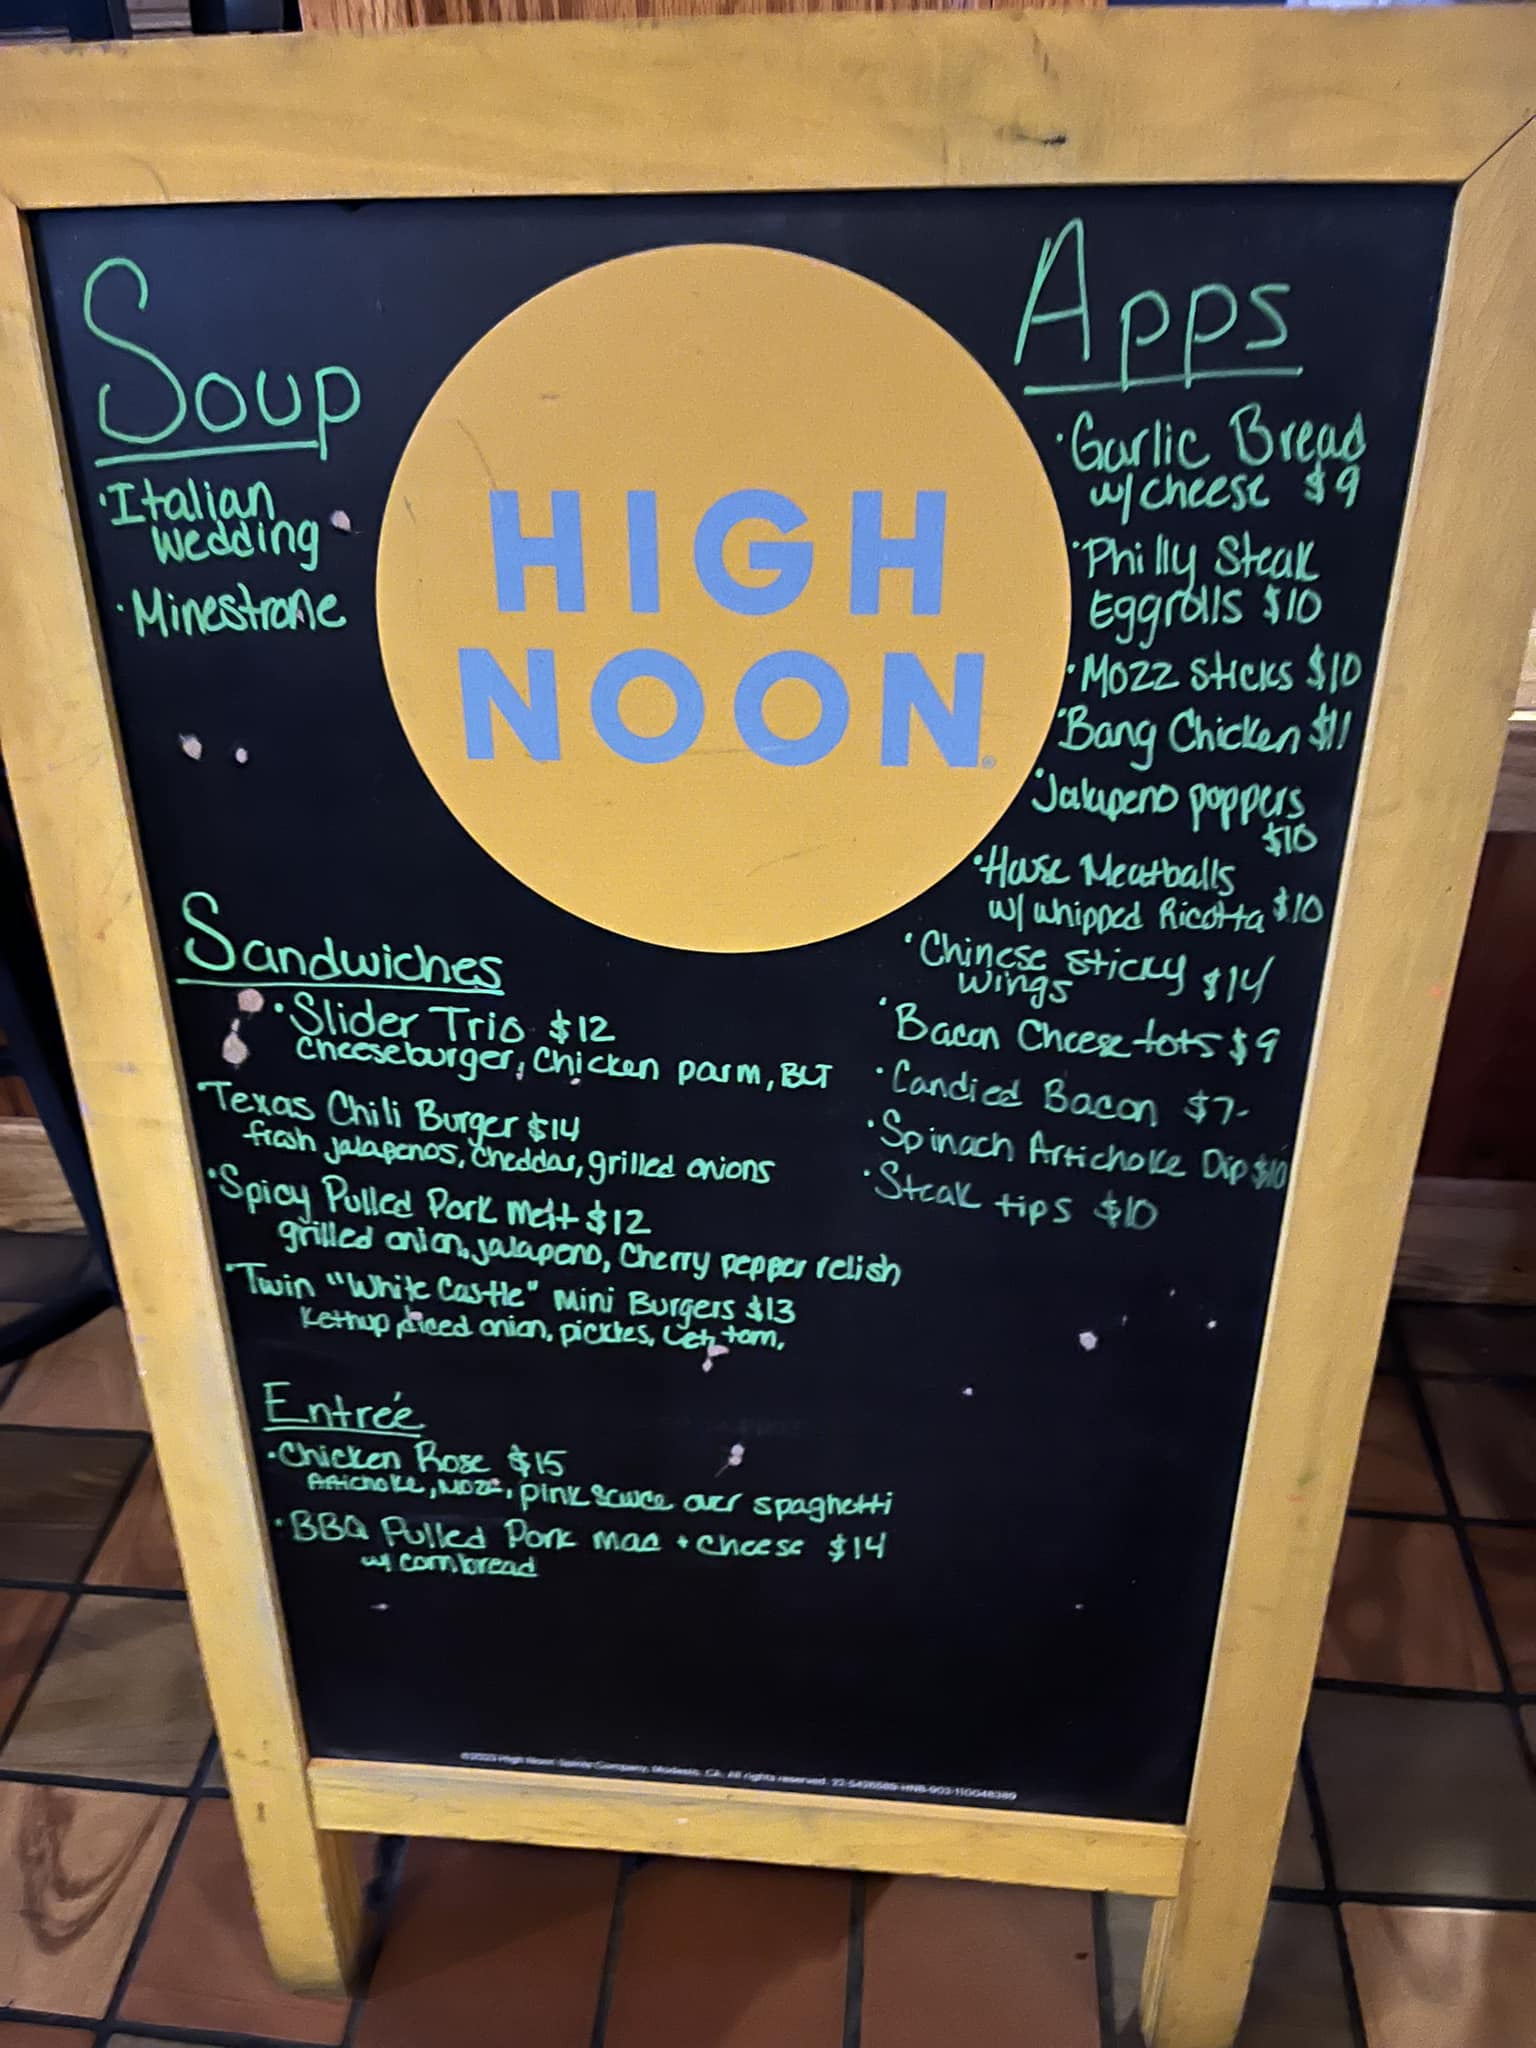 Soup
·Italian
wedding
·Minestrone
HIGH
NOON®
Apps
·Garlic Bread
w/ cheese $9
·Philly Steak
Eggrolls $10
·Mozz Sticks $10
·Bang Chicken $11
·Jalapeno poppers
$10
·House Meatballs
w/ whipped Ricotta $10
·Chinese Sticky $14
Wings
·Bacon Cheese tots $9
·Candied Bacon $7-
·Spinach Artichoke Dip $10
·Steak tips $10
Sandwiches
·Slider Trio $12
Cheeseburger, Chicken parm, BLT
·Texas Chili Burger $14
fresh jalapenos, cheddar, grilled onions
·Spicy Pulled Pork Melt $12
grilled onion, jalapeno, Cherry pepper relish
·Twin "White Castle" Mini Burgers $13
Kethup diced onion, pickles, Let, tom,
Entreé
·Chicken Rose $15
Artichoke, Mozz, pink sauce over spaghetti
·BBQ Pulled Pork Mac + cheese $14
w/ cornbread
©2023 High Noon Spirits Company, Modesto, CA. All rights reserved. 22-5426589-HNB-903-110048389